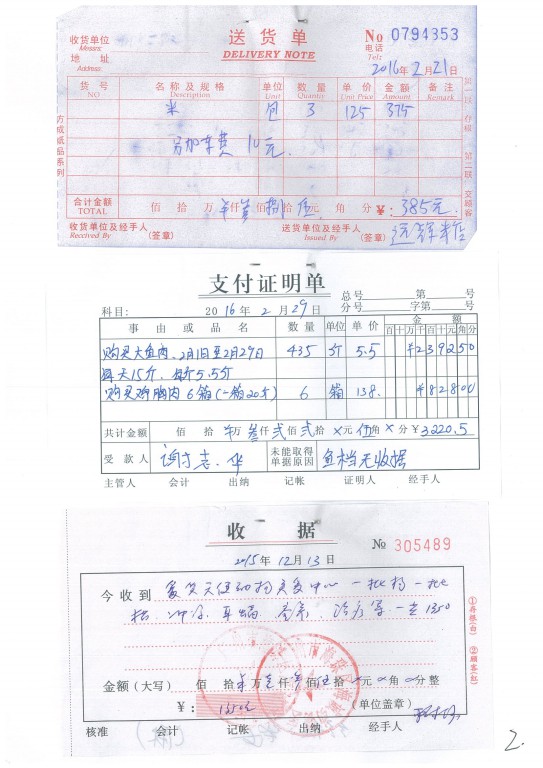 送货单
DELIVERY NOTE
No 0794353
收货单位
Messrs:
地址
Address:
电话
Tel:
2016年2月21日
货号 名称及规格 单位 数量 单价 金额 备注
NO. Description Unit Quantity Unit Price Amount Remark
米 包 3 125 375
另加车费 10元.
合计金额 佰 拾 万 仟 佰 拾 伍元 角 分 ¥: 385元
TOTAL
收货单位及经手人 (签章) 送货单位及经手人 (签章)
Received By Issued By
第一联 存根 第二联 交顾客
支付证明单
总号 第 号
科目: 2016年2月29日 分号 字第 号
事由或品名 数量 单位 单价 金额
百十万千百十元角分
购买大鱼肉,2月1日至2月29日 435 斤 5.5 ¥239250
每天15斤,每斤5.5斤
购买鸡胸肉6箱(一箱20斤) 6 箱 138. ¥82800
共计金额 佰 拾 万 叁仟 贰佰 贰拾 ×元 伍角 ×分 ¥3220.5
受款人 谢志华 未能取得单据原因 鱼档无收据
主管人 会计 出纳 记帐 证明人 经手人
收据
No 305489
2015年12月13日
今收到
一批
治疗
1350
金额(大写) 佰 拾 万 仟 佰 伍拾 元 角 分整
¥: 1350元 (单位盖章)
①存根(白) ②顾客(红)
核准 会计 记帐 出纳 经手人
2.